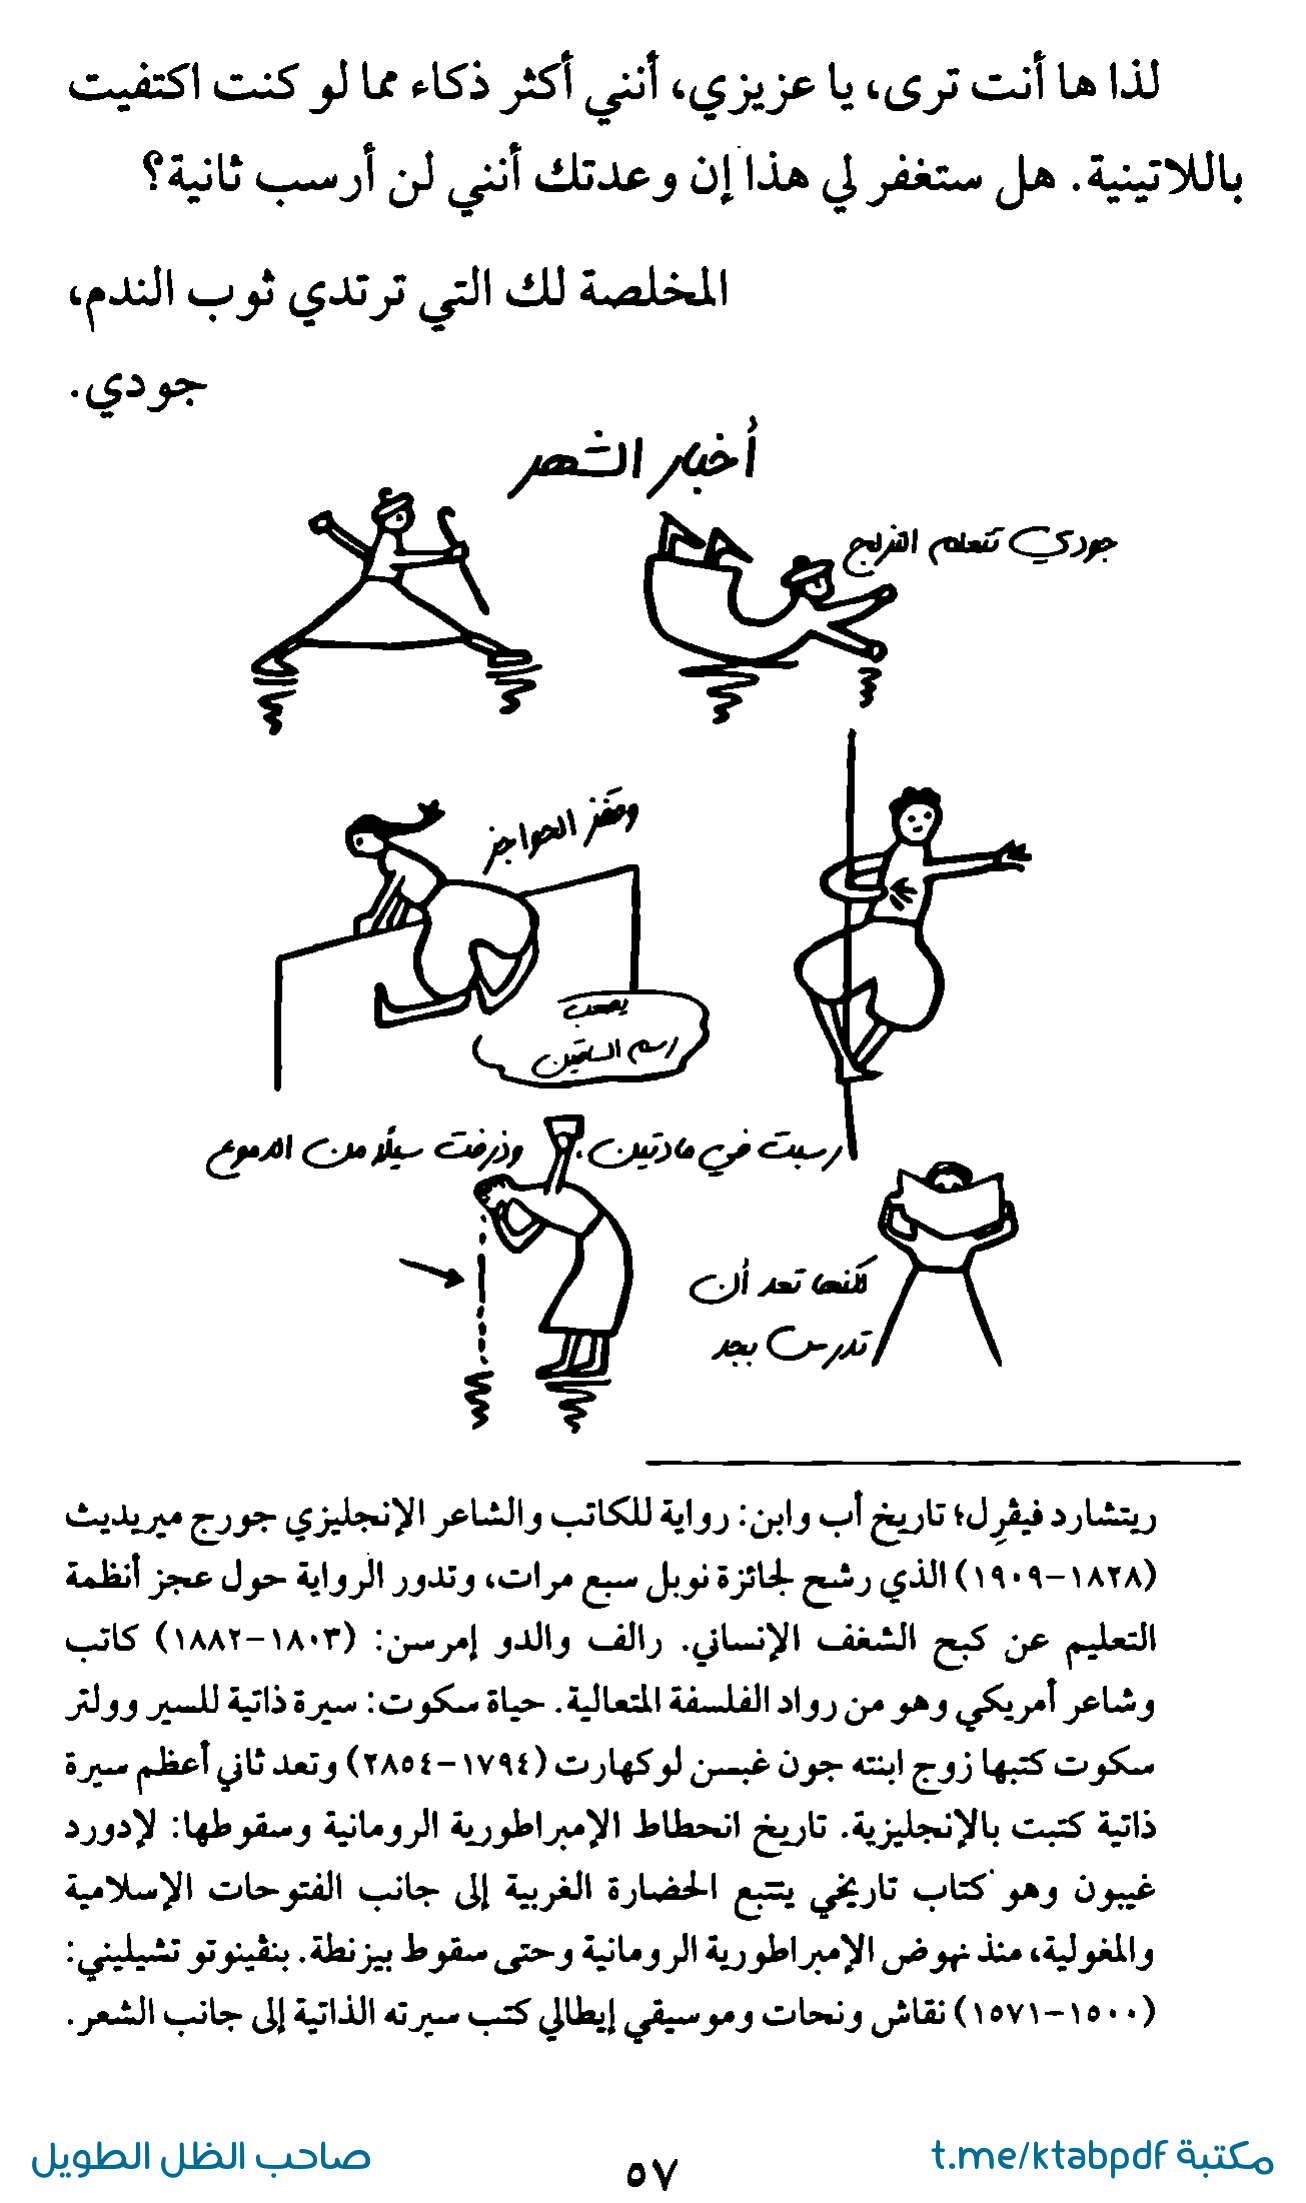 لذا ها أنت ترى، يا عزيزي، أنني أكثر ذكاء مما لو كنت اكتفيت
باللاتينية. هل ستغفر لي هذا إن وعدتك أنني لن أرسب ثانية؟
المخلصة لك التي ترتدي ثوب الندم،
جودي.
أخبار الشهر
جودي تتعلم التزلج
وقفز الحواجز
يصعب
رسم الساقين
رسبت في مادتين. وذرفت سيلًا من الدموع
لكنها تعد أن
تدرس بجد
ريتشارد فيڤرِل؛ تاريخ أب وابن: رواية للكاتب والشاعر الإنجليزي جورج ميريديث
(١٨٢٨-١٩٠٩) الذي رشح لجائزة نوبل سبع مرات، وتدور الرواية حول عجز أنظمة
التعليم عن كبح الشغف الإنساني. رالف والدو إمرسن: (١٨٠٣-١٨٨٢) كاتب
وشاعر أمريكي وهو من رواد الفلسفة المتعالية. حياة سكوت: سيرة ذاتية للسير وولتر
سكوت كتبها زوج ابنته جون غبسن لوكهارت (١٧٩٤-٢٨٥٤) وتعد ثاني أعظم سيرة
ذاتية كتبت بالإنجليزية. تاريخ انحطاط الإمبراطورية الرومانية وسقوطها: لإدورد
غيبون وهو كتاب تاريخي يتتبع الحضارة الغربية إلى جانب الفتوحات الإسلامية
والمغولية، منذ نهوض الإمبراطورية الرومانية وحتى سقوط بيزنطة. بنڤينوتو تشيليني:
(١٥٠٠-١٥٧١) نقاش ونحات وموسيقي إيطالي كتب سيرته الذاتية إلى جانب الشعر.
مكتبة t.me/ktabpdf
٥٧
صاحب الظل الطويل